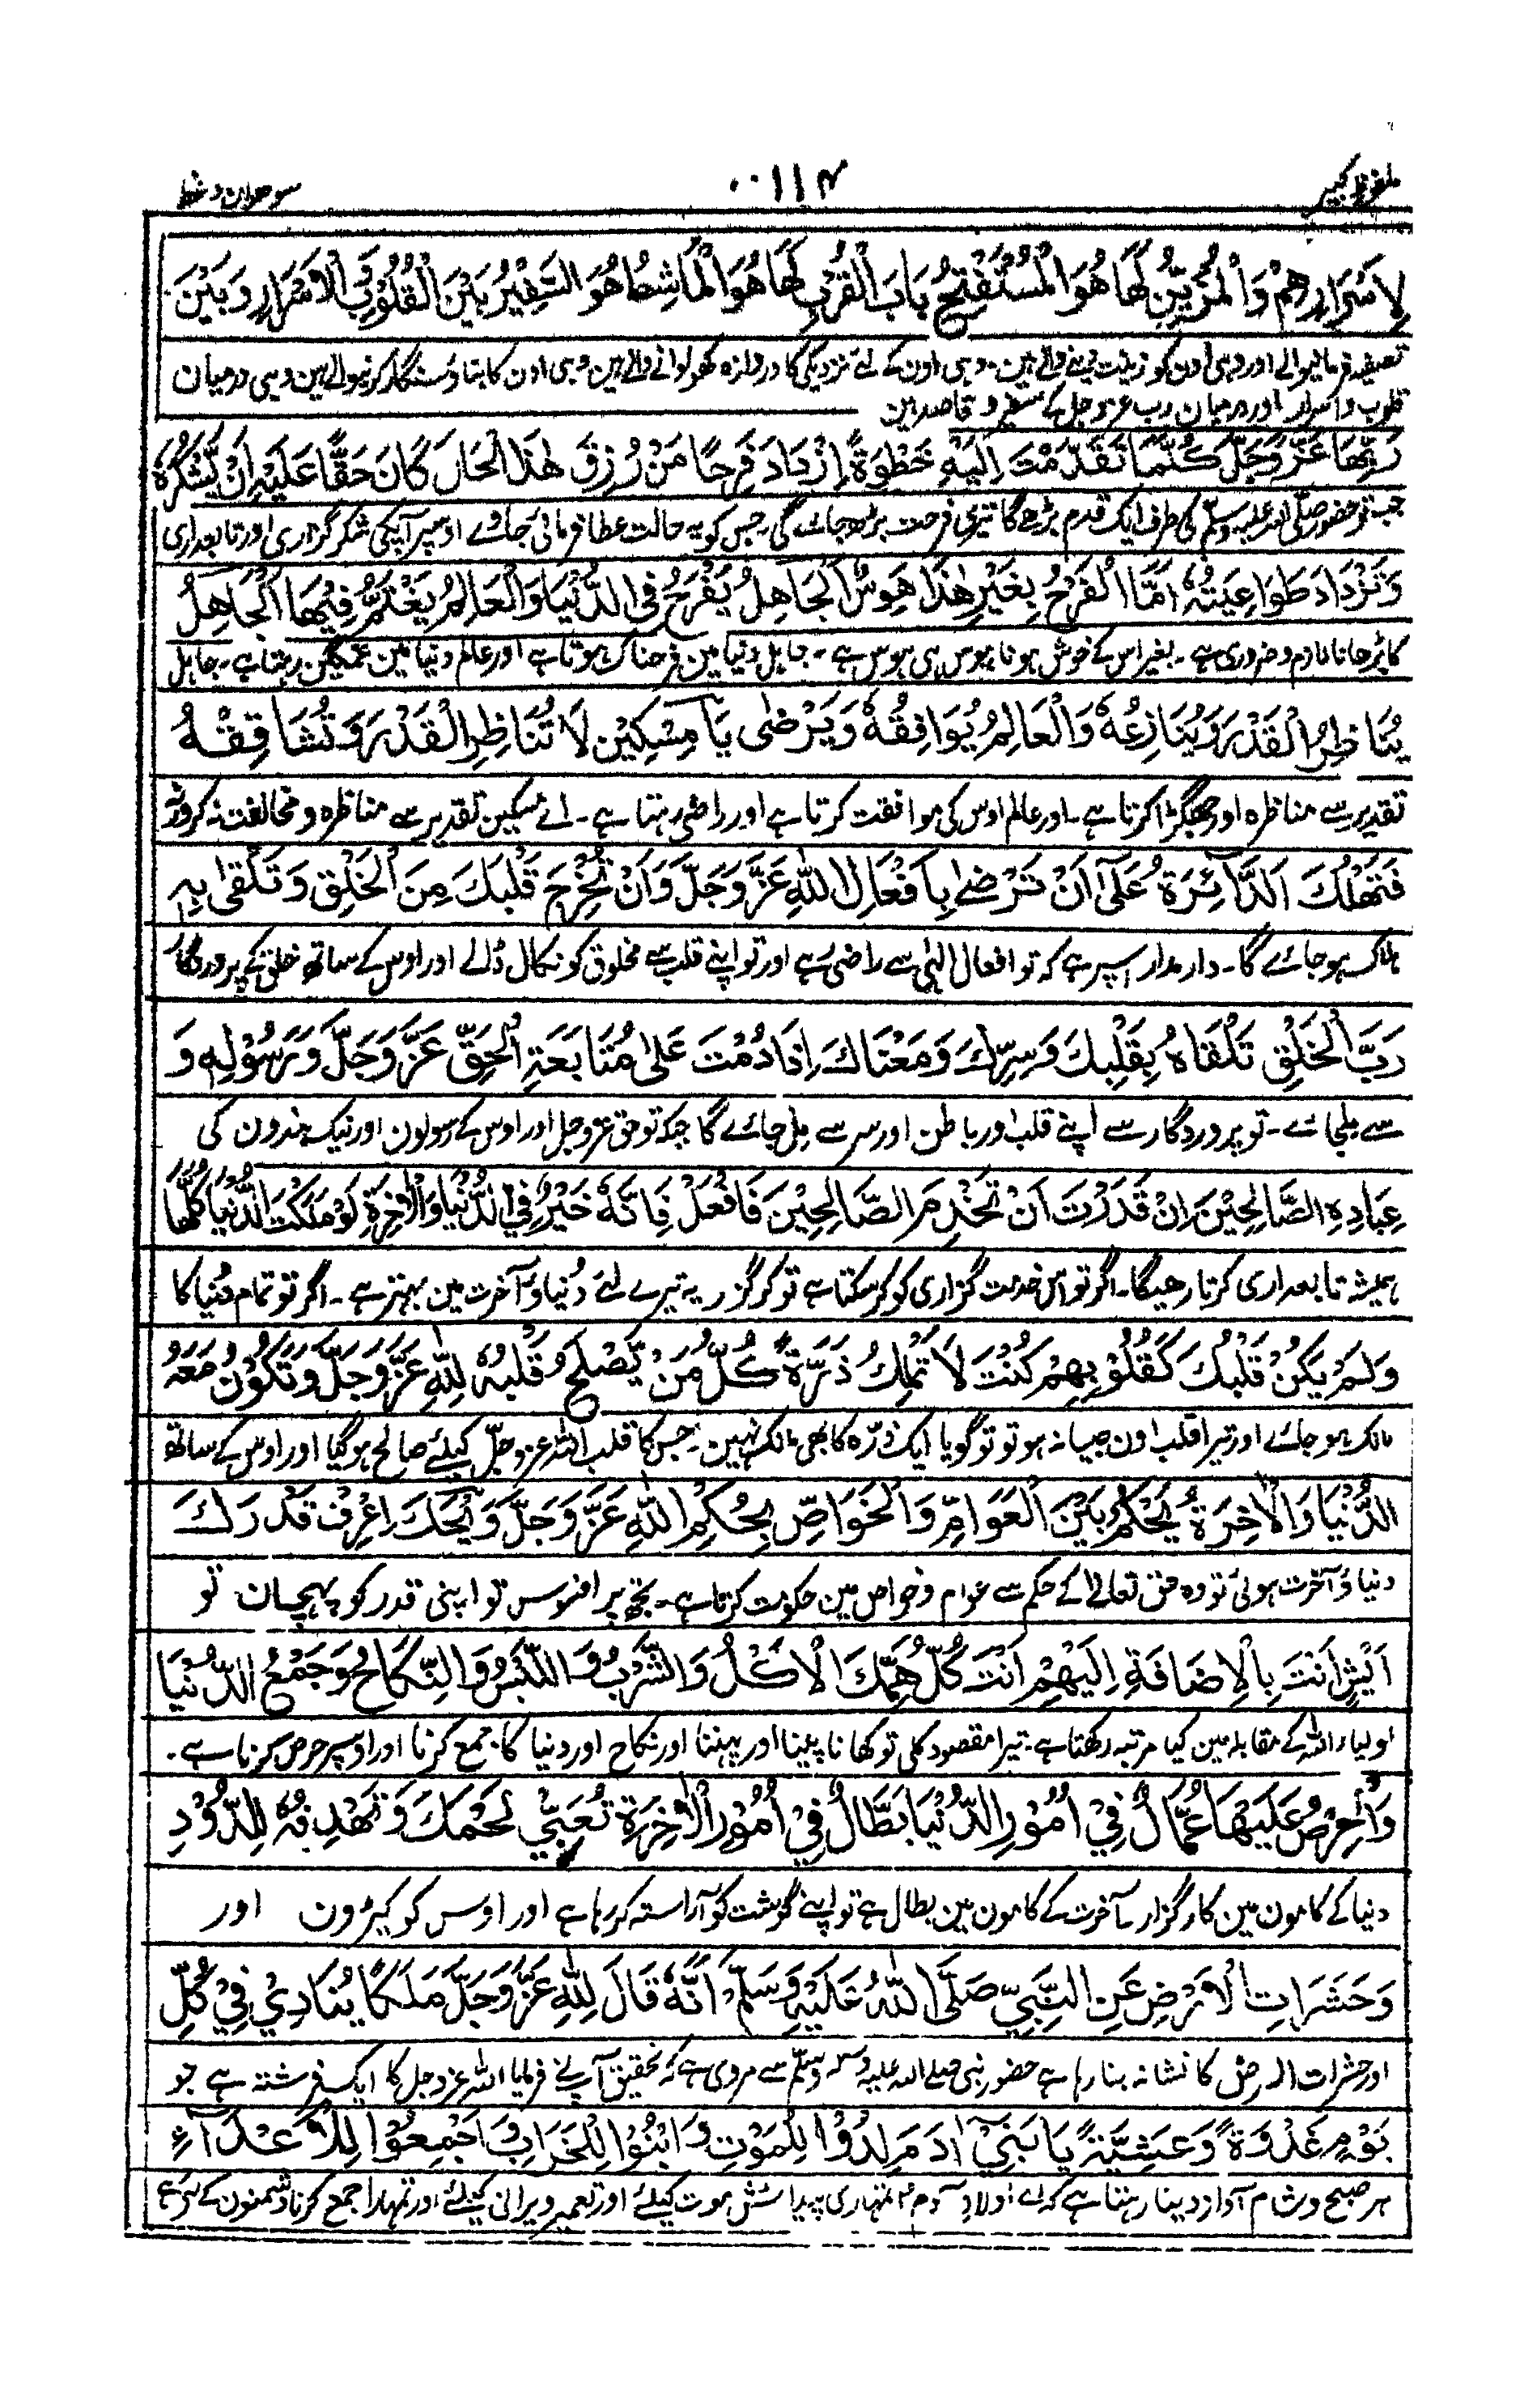 ملفوظ کبیر
۱۱۴
لِاَسْرَارِهِمْ وَالْمُزَيِّنُ لَهَا هُوَ الْمُسْتَفْتِحُ بَابَ الْقُرْبِ لَهَا هُوَ الْمَاشِطُ هُوَ السَّفِيْرُ بَيْنَ الْقُلُوْبِ وَالْاَسْرَارِ وَبَيْنَ
تصفیہ فرمانیوالے اور وہی اون کو زینت دینے والے ہین۔ وہی اون کے لئے نزدیکی کا دروازہ کھولوانے والے ہین وہی اون کا بناؤ سنگار کرنیوالے ہین وہی درمیان
قلوب و اسرار اور درمیان رب عزوجل کے سفیر و قاصد ہین
رَبِّهَا عَزَّ وَجَلَّ كُلَّمَا تَقَدَّمْتَ اِلَيْهِ خَطْوَةً اِزْدَادَ فَرِحًا مَنْ رُزِقَ هٰذَا الْحَالَ كَانَ حَقًّا عَلَيْهِ اَنْ يَّشْكُرَهٗ
جب تو حضور صلی اللہ علیہ وسلم کی طرف ایک قدم بڑھے گا تیری فرحت بڑھ جائے گی۔ جس کو یہ حالت عطا فرمائی جاوے اوسپر آپکی شکر گزاری اور تابعداری
وَتَزْدَادَ طَوَاعِيَتُهٗ اَمَّا الْفَرْحُ بِغَيْرِ هٰذَا هَوِسٌ اَلْجَاهِلُ يَفْرَحُ فِى الدُّنْيَا وَالْعَالِمُ يَغْتَمُّ فِيْهَا اَلْجَاهِلُ
کا بڑھانا لازم و ضروری ہے۔ بغیر اس کے خوش ہونا ہوس ہی ہوس ہے۔ جاہل دنیا مین فرحناک ہوتا ہے اور عالم دنیا مین غمگین رہتا ہے۔ جاہل
يُنَاظِرُ الْقَدْرَ وَيُنَازِعُهٗ وَالْعَالِمُ يُوَافِقُهٗ وَيَرْضٰى يَا مِسْكِيْنُ لَا تُنَاظِرِ الْقَدْرَ وَتُشَاقِقْهُ
تقدیر سے مناظرہ اور جھگڑا کرتا ہے۔ اور عالم اوس کی موافقت کرتا ہے اور راضی رہتا ہے۔ اے مسکین تقدیر سے مناظرہ و مخالفت نہ کر ورنہ
فَتَهْلُكَ اَلدَّآئِرَةُ عَلٰى اَنْ تَرْضٰى بِاَفْعَالِ اللّٰهِ عَزَّ وَجَلَّ وَاَنْ تُخْرِجَ قَلْبَكَ مِنَ الْخَلْقِ وَتَلْقٰى بِهٖ
ہلاک ہو جائے گا۔ دارمدار اسپر ہے کہ تو افعال الٰہی سے راضی رہے اور تو اپنے قلب سے مخلوق کو نکال ڈالے اور اوس کے ساتھ خلق کے پروردگار
رَبَّ الْخَلْقِ تَلْقَاهُ بِقَلْبِكَ وَسِرِّكَ وَمَعْنَاكَ اِذَا دُمْتَ عَلٰى مُتَابَعَةِ الْحَقِّ عَزَّ وَجَلَّ وَرَسُوْلِهٖ وَ
سے ملجائے۔ تو پروردگار سے اپنے قلب اور باطن اور سر سے مل جائے گا جبکہ تو حق عزوجل اور اوس کے رسولون اور نیک بندون کی
عِبَادِهِ الصَّالِحِيْنَ اِنْ قَدَرْتَ اَنْ تَخْدِمَ الصَّالِحِيْنَ فَافْعَلْ فَاِنَّهٗ خَيْرٌ فِى الدُّنْيَا وَالْاٰخِرَةِ لَوْ مَلَكْتَ الدُّنْيَا كُلَّهَا
ہمیشہ تابعداری کرتا رہیگا۔ اگر تو اس خدمت گزاری کو کر سکتا ہے تو کر گزر یہ تیرے لئے دُنیا و آخرت مین بہتر ہے۔ اگر تو تمام دُنیا کا
وَلَمْ يَكُنْ قَلْبُكَ كَقُلُوْبِهِمْ كُنْتَ لَا تَمْلِكُ ذَرَّةً كُلُّ مَنْ يَّصْلَحُ قَلْبُهٗ لِلّٰهِ عَزَّ وَجَلَّ وَتَكُوْنُ مَعَهُ
مالک ہو جائے اور تیرا قلب اون جیسا نہ ہو تو تو گویا ایک ذرّہ کا بھی مالک نہین۔ جس کا قلب اللہ عزوجل کیلئے صالح ہو گیا اور اوس کے ساتھ
الدُّنْيَا وَالْاٰخِرَةُ يَحْكُمُ بَيْنَ الْعَوَامِّ وَالْخَوَاصِّ بِحُكْمِ اللّٰهِ عَزَّ وَجَلَّ وَيْحَكَ اِعْرِفْ قَدْرَكَ
دنیا و آخرت ہوئی تو وہ حق تعالےٰ کے حکم سے عوام و خواص مین حکومت کرتا ہے۔ تجھ پر افسوس تو اپنی قدر کو پہچان تو
اَيْشٍ اَنْتَ بِالْاِضَافَةِ اِلَيْهِمْ اَنْتَ كُلُّ هَمِّكَ الْاَكْلُ وَالشُّرْبُ وَاللُّبْسُ وَالنِّكَاحُ وَجَمْعُ الدُّنْيَا
اولیاء اللہ کے مقابلہ مین کیا مرتبہ رکھتا ہے۔ تیرا مقصود کلی تو کھانا پینا اور پہننا اور نکاح اور دنیا کا جمع کرنا اور اوسپر حرص کرنا ہے۔
وَالْحِرْصُ عَلَيْهَا عُمَّالٌ فِيْ اُمُوْرِ الدُّنْيَا بَطَّالٌ فِيْ اُمُوْرِ الْاٰخِرَةِ تُعَبِّيْ لَحْمَكَ وَتُهْدِفُهٗ لِلدُّوْدِ
دنیا کے کامون مین کارگزار۔ آخرت کے کامون مین بطال ہے تو اپنے گوشت کو آراستہ کر رہا ہے اور اوس کو کیڑون اور
وَحَشَرَاتِ الْاَرْضِ عَنِ النَّبِيِّ صَلَّى اللّٰهُ عَلَيْهِ وَسَلَّمَ اَنَّهٗ قَالَ لِلّٰهِ عَزَّ وَجَلَّ مَلَكًا يُنَادِيْ فِيْ كُلِّ
اور حشرات الارض کا نشانہ بنا رہا ہے حضور نبی صلے اللہ علیہ وسلم سے مروی ہے کہ تحقیق آپ نے فرمایا اللہ عزوجل کا ایک فرشتہ ہے جو
يَوْمٍ غَدْوَةً وَعَشِيَّةً يَا بَنِيْ اٰدَمَ لِدُوْا لِلْمَوْتِ وَابْنُوْا لِلْخَرَابِ وَاجْمِعُوْا لِلْاَعْدَآءِ
ہر صبح و شام آواز دیتا رہتا ہے کہ اے اولاد آدم تمہاری پیدائش موت کیلئے اور تعمیر ویرانی کیلئے اور تمہارا جمع کرنا دشمنون کے